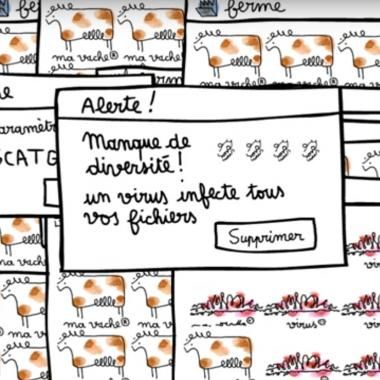 ferme
ma vache®
ma vache®
Alerte !
paramètr
CATG
Manque de
diversité !
un virus infecte tous
vos fichiers
Supprimer
ma vache®
ma va
virus©